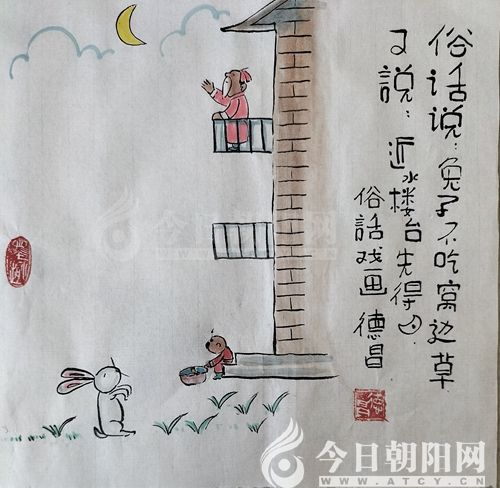 俗话说：兔子不吃窝边草
又说：近水楼台先得月.
俗話戏画 德昌
德昌
今日朝阳网
今日朝阳网
WWW.ATCY.CN